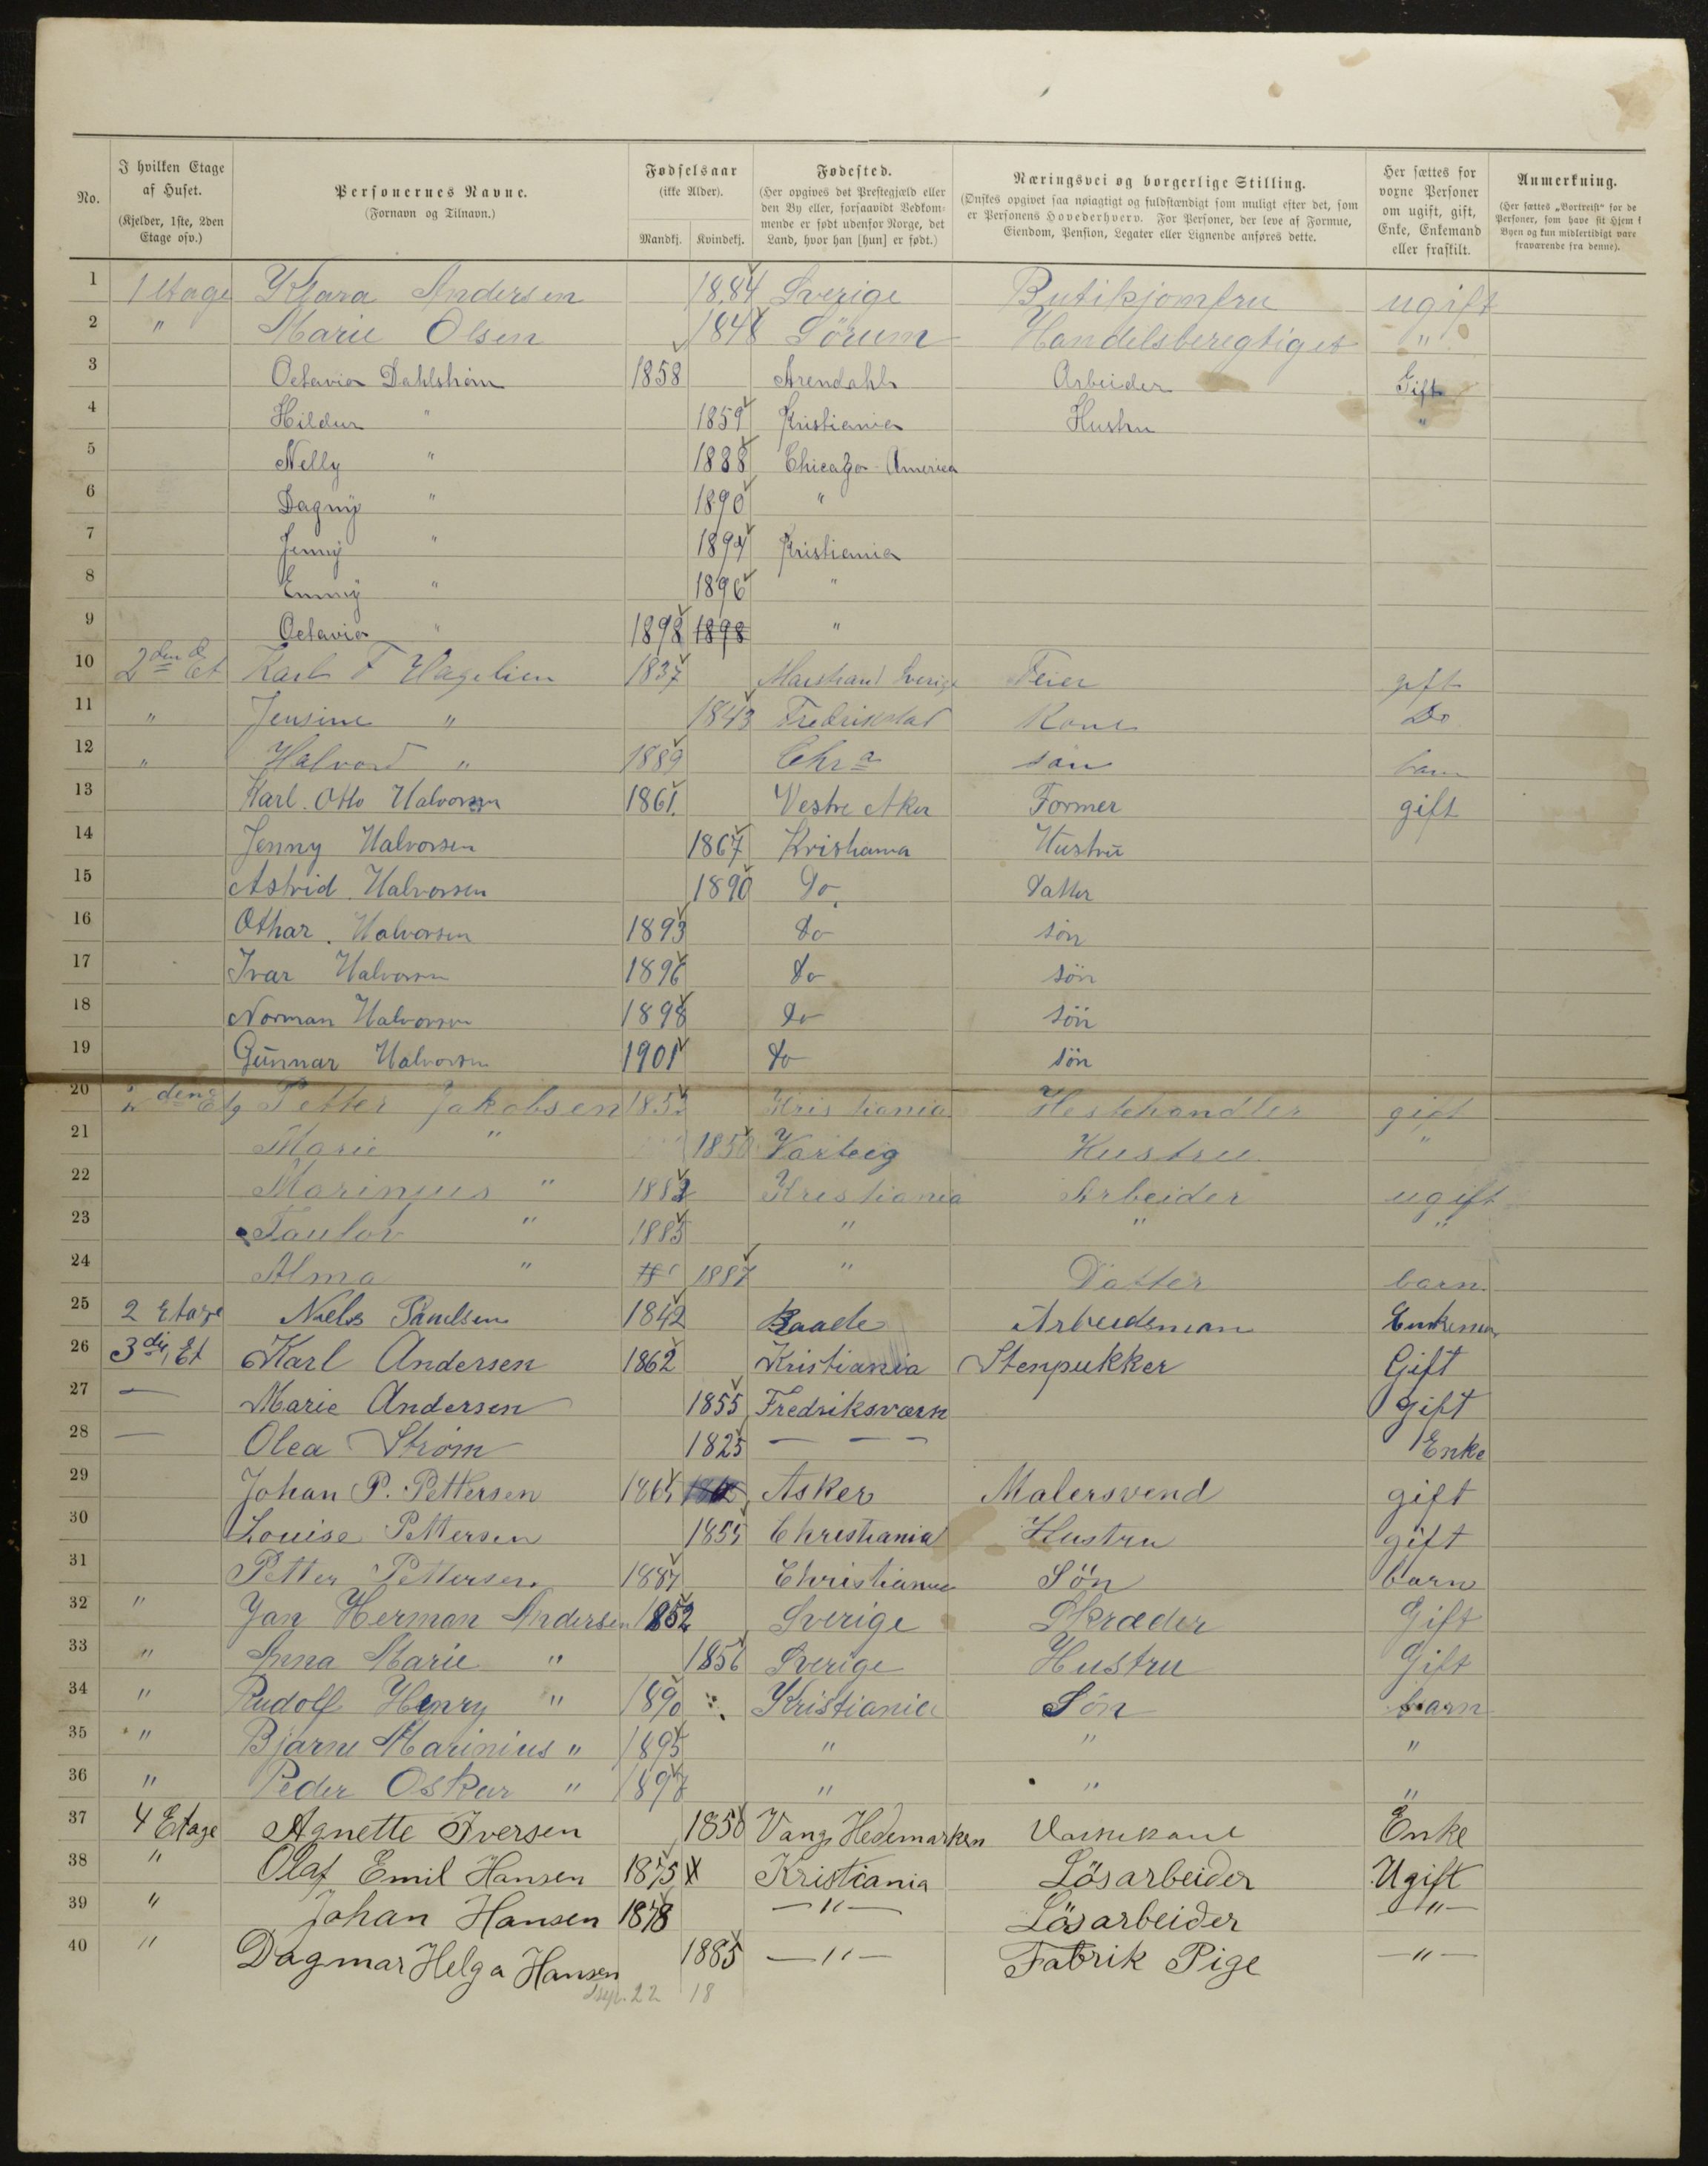 No. I hvilken Etage af Huset. (Kjelder, 1ste, 2den Etage osv.) Personernes Navne. (Fornavn og Tilnavn.) Fødselsaar (ikke Alder). Mandkj. Kvindekj. Fødested. (Her opgives det Præstegjæld eller den By eller, forsaavidt Vedkommende er født udenfor Norge, det Land, hvor han [hun] er født.) Næringsvei og borgerlige Stilling. (Ønskes opgivet saa nøiagtigt og fuldstændigt som muligt efter det, som er Personens Hovederhverv. For Personer, der leve af Formue, Eiendom, Pension, Legater eller Lignende anføres dette.) Her sættes for voxne Personer om ugift, gift, Enke, Enkemand eller fraskilt. Anmerkning. (Her sættes „Bortreist“ for de Personer, som have sit Hjem i Byen og kun midlertidigt vare fraværende fra denne).
1 1 Etage Klara Andersen 1884 Sverige Butikjomfru ugift
2 " Marie Olsen 1848 Sörum Handelsberegtiget "
3 Octavia Dahlström 1858 Arendahl Arbeider Gift
4 Hildur " 1859 Kristiania Hustru "
5 Nelly " 1888 Chicago America
6 Dagny " 1890 "
7 Jenny " 1894 Kristiania
8 Emmy " 1896 "
9 Octavia " 1898 1898 "
10 2den Et Karl F Hagelien 1837 Marstrand Sverige Feier gift
11 " Jensine " 1843 Fredrikstad Kone Do
12 " Halvord " 1889 Chr a søn barn
13 Karl. Otto Halvorsen 1861. Vestre Aker Former gift
14 Jenny Halvorsen 1867 Kristiania Hustru
15 Astrid. Halvorsen 1890 do. datter
16 Othar. Halvorsen 1893 do sön
17 Ivar Halvorsen 1896 do sön
18 Norman Halvorsen 1898 do sön
19 Gunnar Halvorsen 1901 do sön
20 den Etg Petter Jakobsen Kristiania Hestehandler gift
21 Marie " 1850 Varteig Hustru "
22 Marinius " 1882 Kristiania Arbeider ugift
23 " 1885 " " "
24 Alma " 1887 " Datter barn.
25 2 Etage Niels Paulsen 1842 Raade Arbeidsman Enkeman
26 3die Et Karl Andersen 1862 Kristiania Stenpukker Gift
27 — Marie Andersen 1855 Fredriksværn Gift
28 — Olea Strøm 1825 — — — Enke
29 Johan P. Pettersen 1865 Asker Malersvend gift
30 Louise Pettersen 1855 Christiania Hustru gift
31 Petter Pettersen 1887 Christiania Sön barn
32 " Jan Herman Andersen 1852 Sverige Skræder Gift
33 " Anna Marie " 1856 Sverige Hustru Gift
34 " Rudolf Henry " 1890 Kristiania Sön barn
35 " Bjarne Marinius " 1895 " " "
36 " Peder Oskar " 1897 " " "
37 4 Etage Agnette Iversen 1850 Vang Hedemarken Vaskekone Enke
38 " Olaf Emil Hansen 1875 Kristiania Lösarbeider Ugift
39 " Johan Hansen 1878 — " — Lösarbeider — " —
40 " Dagmar Helga Hansen 1885 — " — Fabrik Pige — " —
22 18